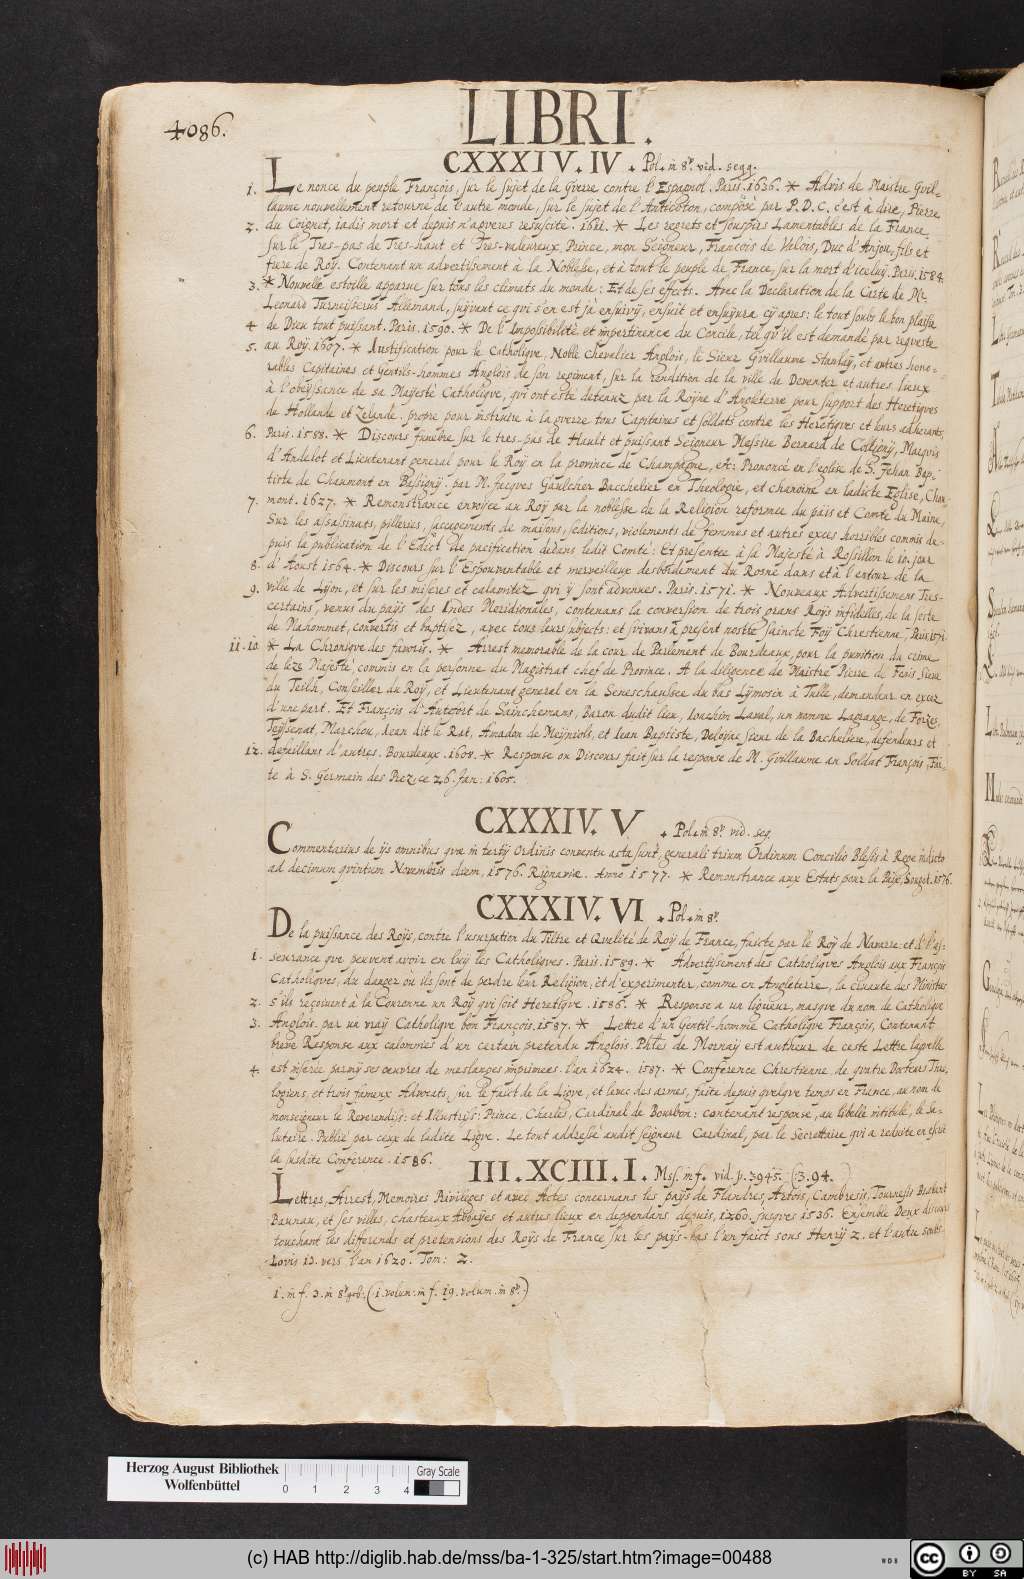 4086.
LIBRI.
CXXXIV. IV. Pol. in 8º. vid. seqq.
1. Le nonce du peuple François, sur le sujet de la Gverre contre l'Espagnol. Paris. 1636. * Advis de Maistre Guil-
laume nouvellement retourné de l'autre monde, sur le sujet de l'Anticoton, composé par P. D. C. c'est à dire, Pierre
2. du Coignet, iadis mort et depuis n'agveres resuscité. 1611. * Les regrets et souspirs Lamentables de la France,
sur le Tres-pas de Tres-haut et Tres-valeureux Prince, mon Seigneur, François de Valois, Duc d'Anjou, fils et
frere de Roy. Contenant un advertissement à la Noblesse, et à tout le peuple de France, sur la mort d'iceluy. Paris. 1584.
3. * Nouvelle estoille apparue sur tous les climats du monde: Et de ses effects. Avec la Declaration de la Carte de Mr.
Leonard Turneisserus Allemand, suyvent ce qui s'en est ja ensuivy, ensuit et ensuyvra cy apres: le tout soubs le bon plaisir
4. de Dieu tout puissant. Paris. 1590. * De l'Impossibilité et impertinence du Concile, tel qu'il est demandé par reqveste
5. au Roy. 1607. * Iustification pour le Catholiqve, Noble Chevalier Anglois, le Sieur Gvillaume Stanlay, et autres hono-
rables Capitaines et Gentils-hommes Anglois de son regiment, sur la rendition de la ville de Deventer et autres lieux
à l'obeyssance de sa Majesté Catholiqve, qvi ont esté detenuz par la Royne d'Angleterre pour support des Heretiqves
de Hollande et Zelande. propre pour instruire à la gverre tous Capitaines et soldats contre les Heretiqves et leurs adherants,
6. Paris. 1588. * Discours funebre sur le tres-pas de Hault et puissant Seigneur Messire Bernard de Colligny, Marqvis
d'Andelot et Lieutenant general pour le Roy en la province de Champagne, &c. Prononcé en l'eglise de S. Jehan Bap-
tiste de Chaumont en Bassigny. par M. Jacqves Gaulcher Bacchelier en Theologie, et chanoine en ladicte Eglise, Chau-
7. mont. 1627. * Remonstrance envoyée au Roy par la noblesse de la Religion reformée du pais et Comté du Maine,
Sur les assassinats, pilleries, saccagements de maisons, seditions, violements de femmes et autres exces horribles commis de-
puis la publication de l'Edict de pacification dedans ledit Comté: Et presentée à sa Majesté à Rossillon le 10. jour
8. d'Aoust 1564. * Discours sur l'Espouventable et merveilleux desbordement du Rosne dans et à l'entour de la
9. ville de Lyon, et sur les miseres et calamitez qvi y sont advenues. Paris. 1571. * Nouveaux Advertissemens Tres-
certains, venus du pays des Indes Meridionales, contenans la conversion de trois grans Roys infidelles, de la secte
de Mahommet, convertis et baptisez, avec tous leurs subjects: et suivans à present nostre saincte Foy Chrestienne, Paris. 1571.
11. 10. * La Chroniqve des favoris. * Arrest memorable de la cour de Parlement de Bourdeaux, pour la punition du crime
de leze Majesté commis en la personne du Magistrat chef de Province. A la diligence de Maistre Pierre de Fenis, Sieur
du Teilh, Conseiller du Roy, et Lieutenant general en la Seneschaussée du bas Lymosin à Tulle, demandeur en excez
d'une part. Et François d'Autefort de Sainchemans, Baron dudit lieu, Ioachim Laval, un nommé Lagrange, de Forges,
Teyssenat, Marchou, Jean dit le Rat, Amadon de Meyniols, et Iean Baptiste, Deloyac sieur de la Bachellerie, defendeurs et
12. defaillans d'autres. Bourdeaux. 1608. * Response ou Discours fait sur la response de M. Gvillaume au Soldat François, Fai-
te à S. Germain des Prez, ce 26. Jan: 1605.
CXXXIV. V. Pol. in 8º. vid. seq.
Commentarius de ijs omnibus qvæ in tertij Ordinis conventu acta sunt, generali trium Ordinum Concilio Blesis à Rege indicto
ad decimum qvintum Novembris diem, 1576. Rignaviæ. Anno 1577. * Remonstrance aux Estats pour la Paix, Souget. 1576.
CXXXIV. VI. Pol. in 8º.
De la puissance des Roys, contre l'usurpation du Tiltre et Qvalité de Roy de France, faicte par le Roy de Navarre: et de l'as-
1. seurance qve peuvent avoir en luy les Catholiqves. Paris. 1589. * Advertissement des Catholiqves Anglois aux François
Catholiqves, du danger où ils sont de perdre leur Religion, et d'experimenter, comme en Angleterre, la cruauté des Ministres
2. s'ils reçoivent à la Couronne un Roy qvi soit Heretiqve. 1586. * Response a un ligueur, masqvé du nom de Catholiqve
3. Anglois. par un vray Catholiqve bon François. 1587. * Lettre d'un Gentil-homme Catholiqve François, Contenant
breve Response aux calomnies d'un certain pretendu Anglois. Phles de Mornay est autheur de ceste Lettre laqvelle
4. est inserée parmy ses œuvres de meslanges imprimees. l'an 1624. 1587. * Conference Chrestienne, de qvatre Docteurs Theo-
logiens, et trois fameux Advocats, sur le faict de la Ligve, et levée des armes, faite depuis qvelqve temps en France, au nom de
monseigneur le Reverendiss: et Illustriss: Prince, Charles, Cardinal de Bourbon: contenant response, au libelle intitulé, le Sa-
lutaire. Publié par ceux de ladite Ligve. Le tout addressé audit seigneur Cardinal, par le Secrettaire qvi a reduite en escrit
la susdite Conference. 1586.
III. XCIII. I. Mss. in f. vid. p. 3945. (: 3.94. )
Lettres, Arrest, Memoires Privileges, et avec Actes concernans les pays de Flandres, Artois, Cambresis, Tournesis Brabant
Baunau, et ses villes, chasteaux Abbayes et autres lieux en deppendans depuis, 1260. jusqves 1536. Ensemble Deux discours
touchant les differends et pretensions des Roys de France sur les pays-bas l'un faict sous Henry 2. et l'autre soubs
Lovis 13. vers l'an 1620. Tom: 2.
1. in f. 3. in 8º. (1. volum. in f. 19. volum. in 8º.)
Herzog August Bibliothek
Wolfenbüttel
0 1 2 3 4
Gray Scale
(c) HAB http://diglib.hab.de/mss/ba-1-325/start.htm?image=00488
WDB
cc BY SA